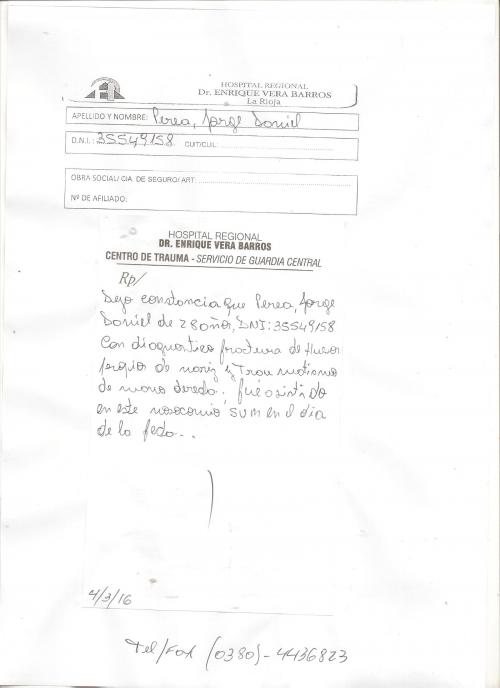 HOSPITAL REGIONAL
Dr. ENRIQUE VERA BARROS
La Rioja
APELLIDO Y NOMBRE: Perea, Jorge Daniel
D.N.I.: 35549158 CUIT/CUIL:
OBRA SOCIAL/ CIA. DE SEGURO/ ART
Nº DE AFILIADO:
HOSPITAL REGIONAL
DR. ENRIQUE VERA BARROS
CENTRO DE TRAUMA - SERVICIO DE GUARDIA CENTRAL
Rp/
Dejo constancia que Perea, Jorge
Daniel de 28 años, DNI: 35549158
Con diagnostico fractura de Huesos
propios de nariz y Traumatismo
de mano derecha, fue asistido
en este nosocomio en el día
de la fecha..
4/3/16
Tel/Fax (0380)-4436823